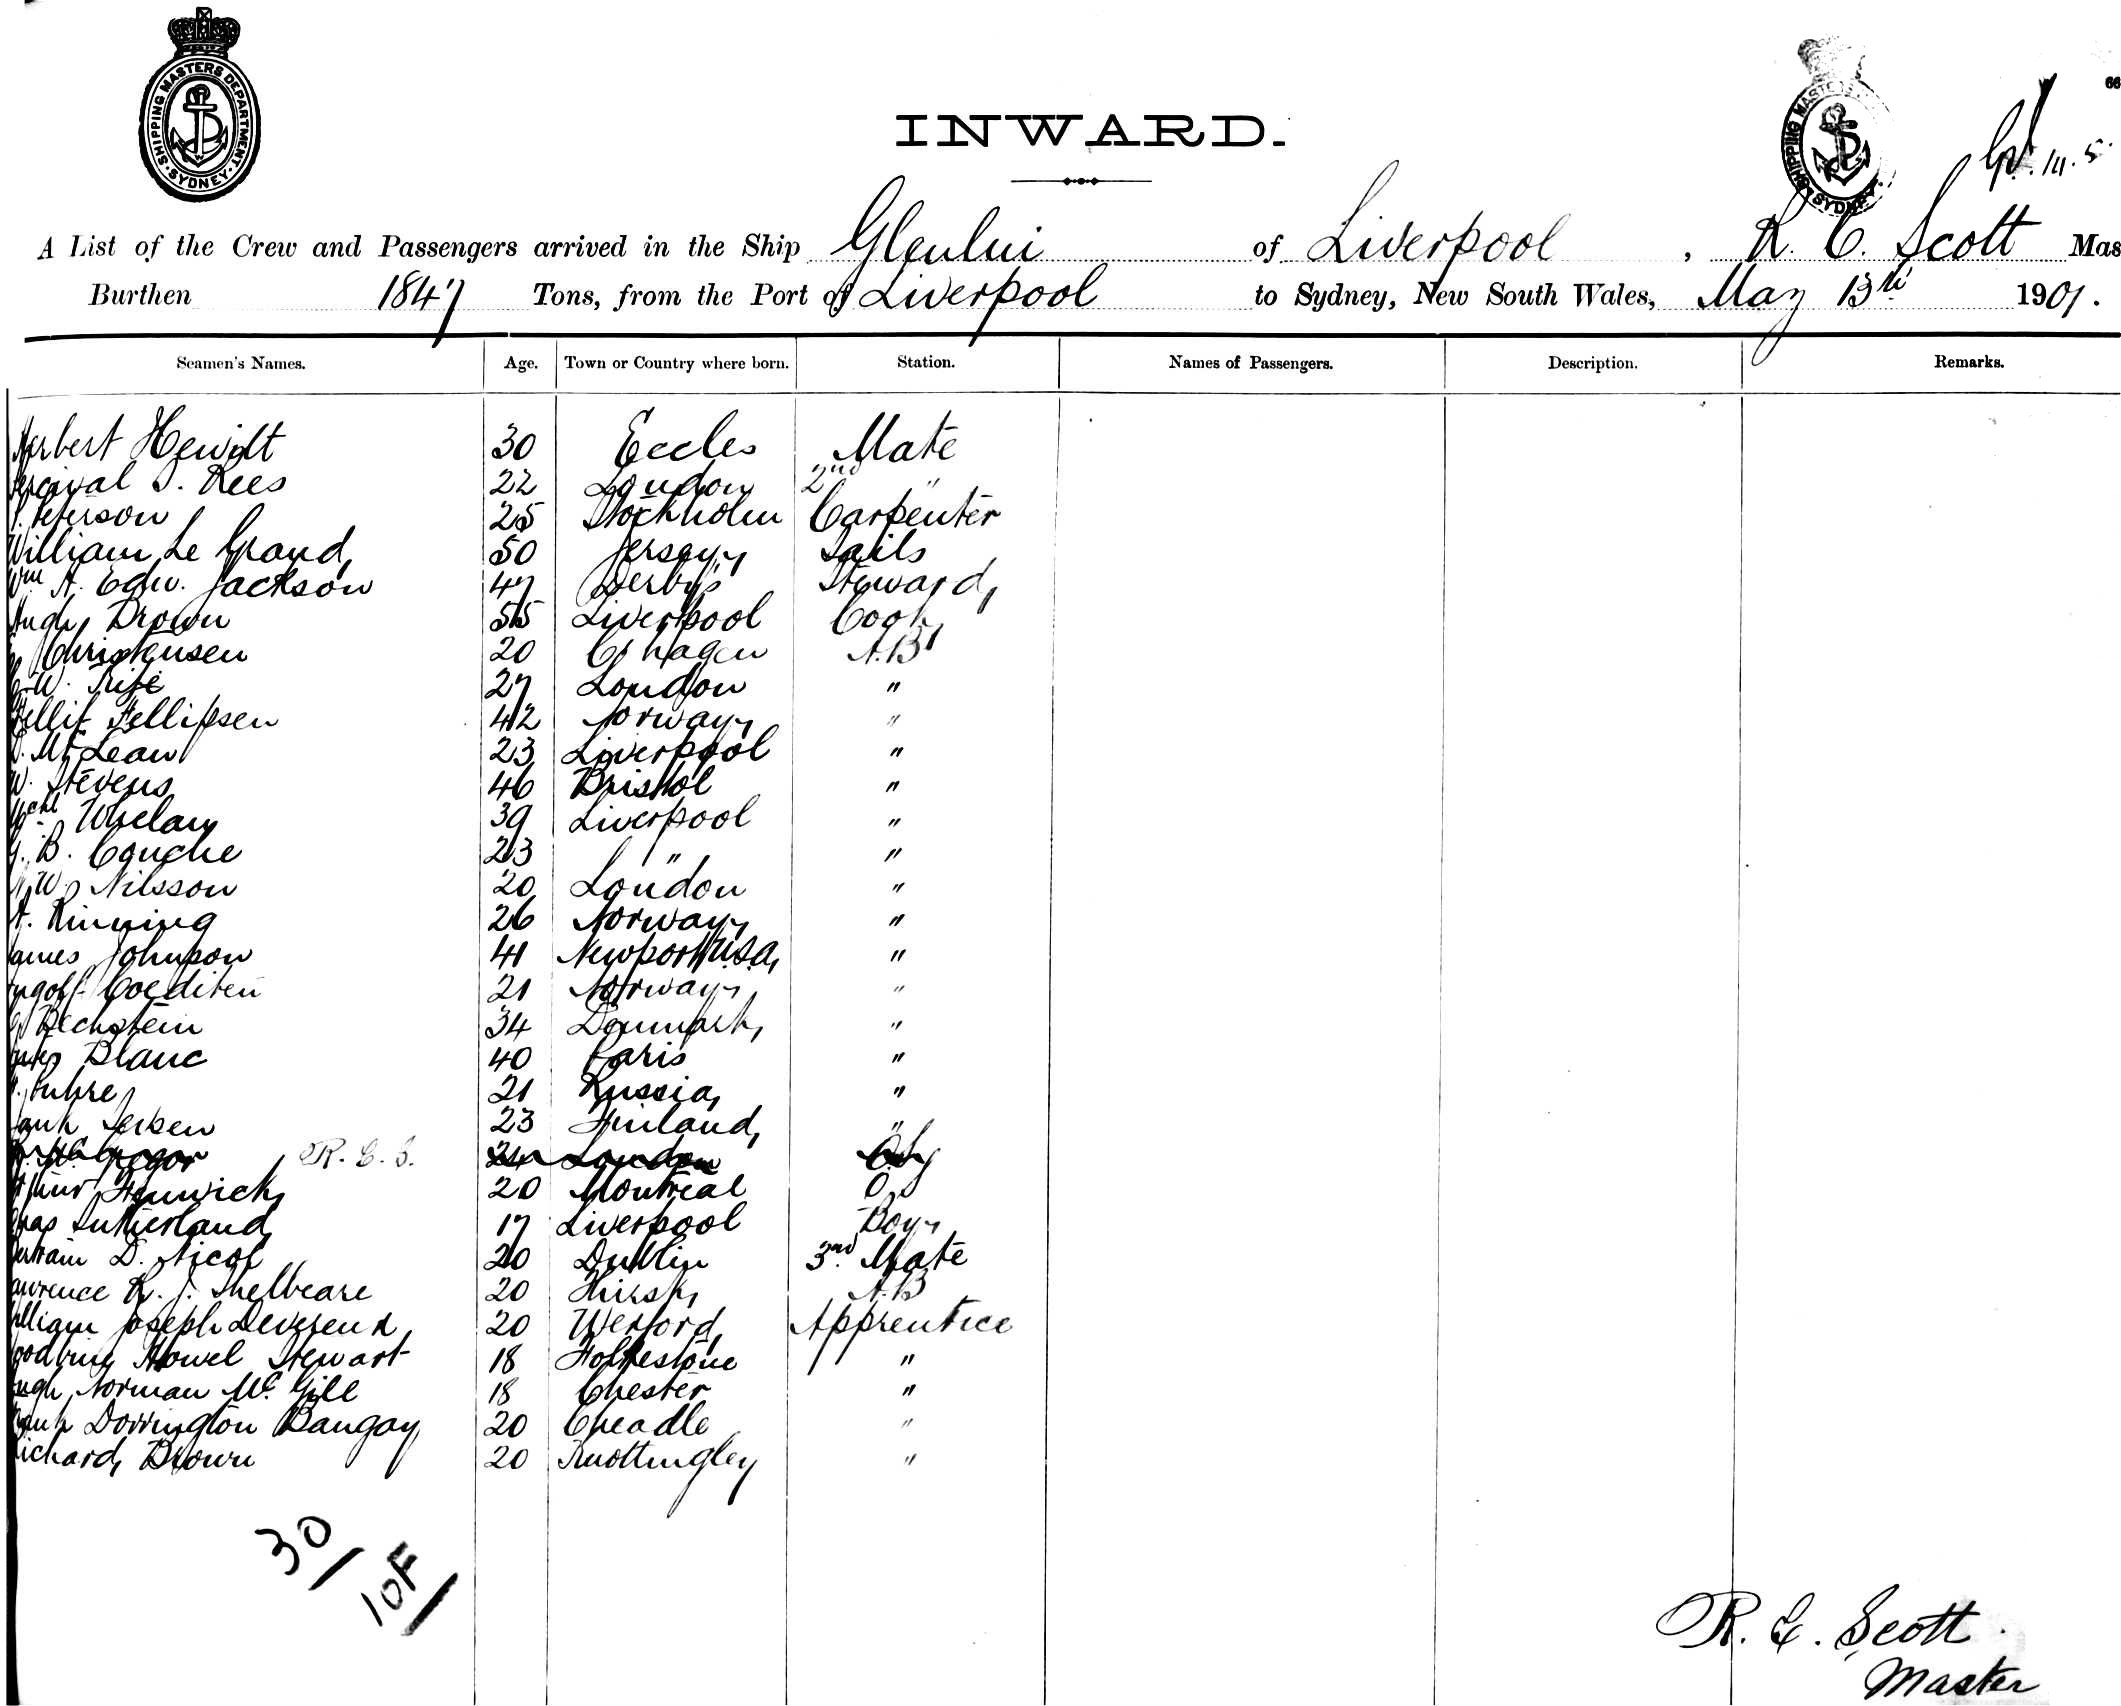 SHIPPING MASTERS DEPARTMENT. SYDNEY.
66
INWARD.
14. 5.
A List of the Crew and Passengers arrived in the Ship Glenlui of Liverpool, R. C. Scott Mas
Burthen 1847 Tons, from the Port of Liverpool to Sydney, New South Wales, May 13th 1901.
Seamen's Names. Age. Town or Country where born. Station. Names of Passengers. Description. Remarks.
Herbert Hewitt 30 Eccles Mate
Percival S. Rees 22 London 2nd "
Peterson 25 Stockholm Carpenter
William Le Grand 50 Jersey Sails
Wm A. Edw. Jackson 47 Derby Steward
Hugh Brown 55 Liverpool Cook
Christensen 20 C'hagen A.B
W. 27 London "
Fellif Fellipsen 42 Norway "
McLean 23 Liverpool "
W. Stevens 46 Bristol "
Mchl Whelan 39 Liverpool "
B. Couche 23 " "
W. Nilsson 20 London "
A. Rinning 26 Norway "
ames Johnson 41 Newport U.S.A. "
21 Norway "
Bechstein 34 Denmark "
Blanc 40 Paris "
Puhre 21 Russia "
ank Jersen 23 Finland "
McGregor R. C. S. 24 London O.S
Fenwick 20 Montreal O.S
Chas Sutherland 17 Liverpool Boy
Bertram D. Nicol 20 Dublin 3rd Mate
awrence R. J. Shelbeare 20 A.B
William Joseph Devereux 20 Wexford Apprentice
Howel Stewart 18 Folkestone "
ugh Norman McGill 18 Chester "
ank Dorrington Bangay 20 Cheadle "
ichard Brown 20 Knottingley "
30/
10F/
R. C. Scott
Master